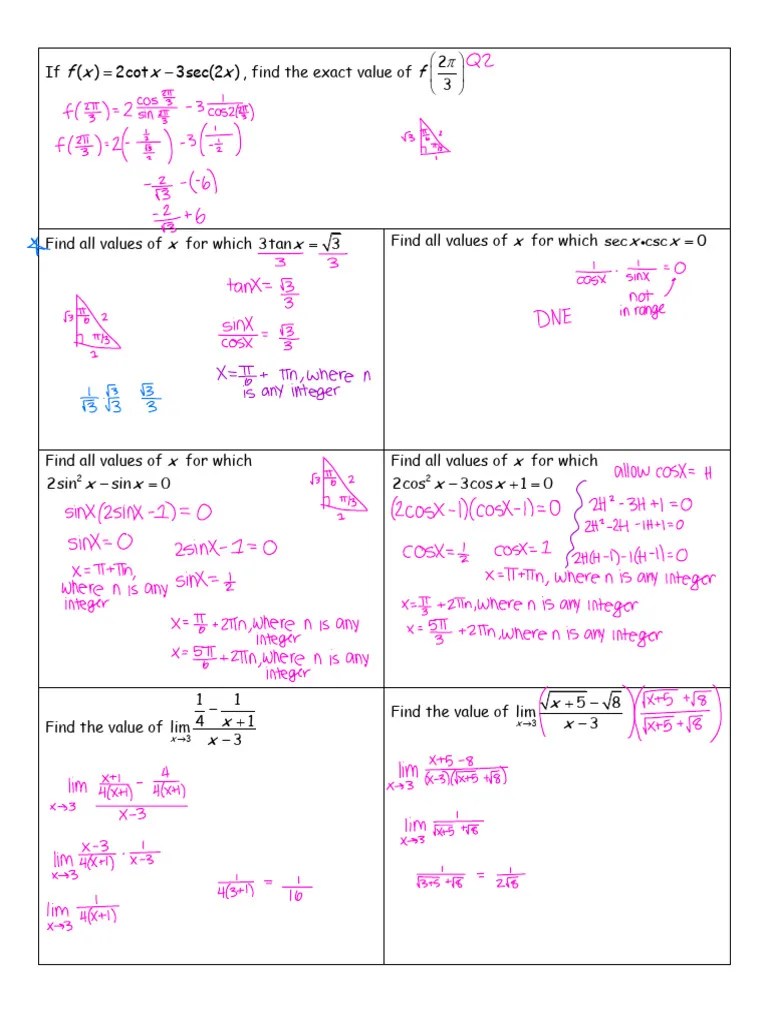 If f(x) = 2cot x − 3sec(2x) , find the exact value of f(2π/3) Q2
f(2π/3) = 2 cos 2π/3 / sin 2π/3 − 3 1/cos2(2π/3)
f(2π/3) = 2(− 1/2 / √3/2) − 3(1/−1/2)
√3 π/6 2 π/3 1
−2/√3 − (−6)
−2/√3 + 6
Find all values of x for which 3 tan x = √3
3 3
tanX = √3/3
√3 π/6 2 π/3 1
sinX/cosX = √3/3
X = π/6 + πn, where n
is any integer
1/√3 · √3/√3 √3/3
Find all values of x for which sec x • csc x = 0
1/cosX · 1/sinX = 0
not
in range
DNE
Find all values of x for which
2sin² x − sin x = 0
√3 π/6 2 π/3 1
sinX(2sinX − 1) = 0
sinX = 0 2sinX − 1 = 0
X = π + πn,
where n is any
integer
sinX = 1/2
X = π/6 + 2πn, where n is any
integer
X = 5π/6 + 2πn, where n is any
integer
Find all values of x for which
2cos² x − 3cos x + 1 = 0
allow cosX = H
2H² − 3H + 1 = 0
2H² − 2H − 1H + 1 = 0
2H(H − 1) − 1(H − 1) = 0
(2cosX − 1)(cosX − 1) = 0
cosX = 1/2 cosX = 1
X = π + πn, where n is any integer
X = π/3 + 2πn, where n is any integer
X = 5π/3 + 2πn, where n is any integer
Find the value of lim x→3 (1/4 − 1/(x + 1)) / (x − 3)
lim x→3 (x+1/4(x+1) − 4/4(x+1)) / x−3
lim x→3 x−3/4(x+1) · 1/x−3
lim x→3 1/4(x+1)
1/4(3+1) = 1/16
Find the value of lim x→3 ((√x + 5 − √8) / (x − 3)) (√x+5 + √8 / √x+5 + √8)
lim x→3 x+5−8 / (x−3)(√x+5 + √8)
lim x→3 1 / √x+5 + √8
1/√3+5 + √8 = 1/2√8